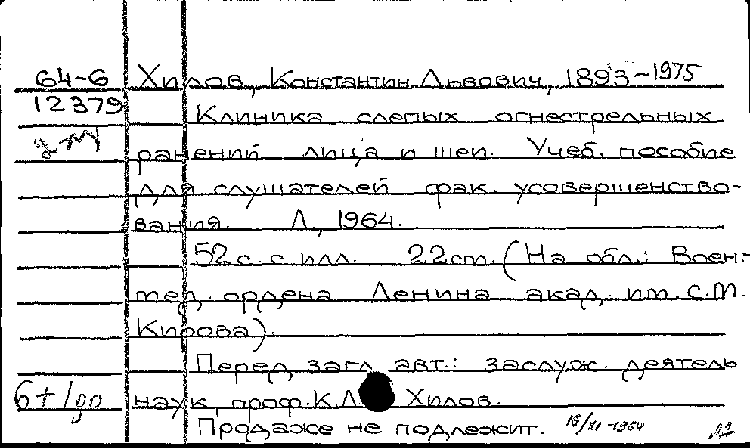 64-6 Хилов, Константин Львович, 1893-1975
12379 Клиника слепых огнестрельных
ранений лица и шеи. Учеб. пособие
для слушателей фак. усовершенство-
вания. Л., 1964.
52 с. с илл. 22 см. (На обл.: Воен.-
мед. ордена Ленина акад. им. С.М.
Кирова).
Перед загл. авт.: заслуж. деятель
наук, проф. К.Л. Хилов.
Продаже не подлежит.